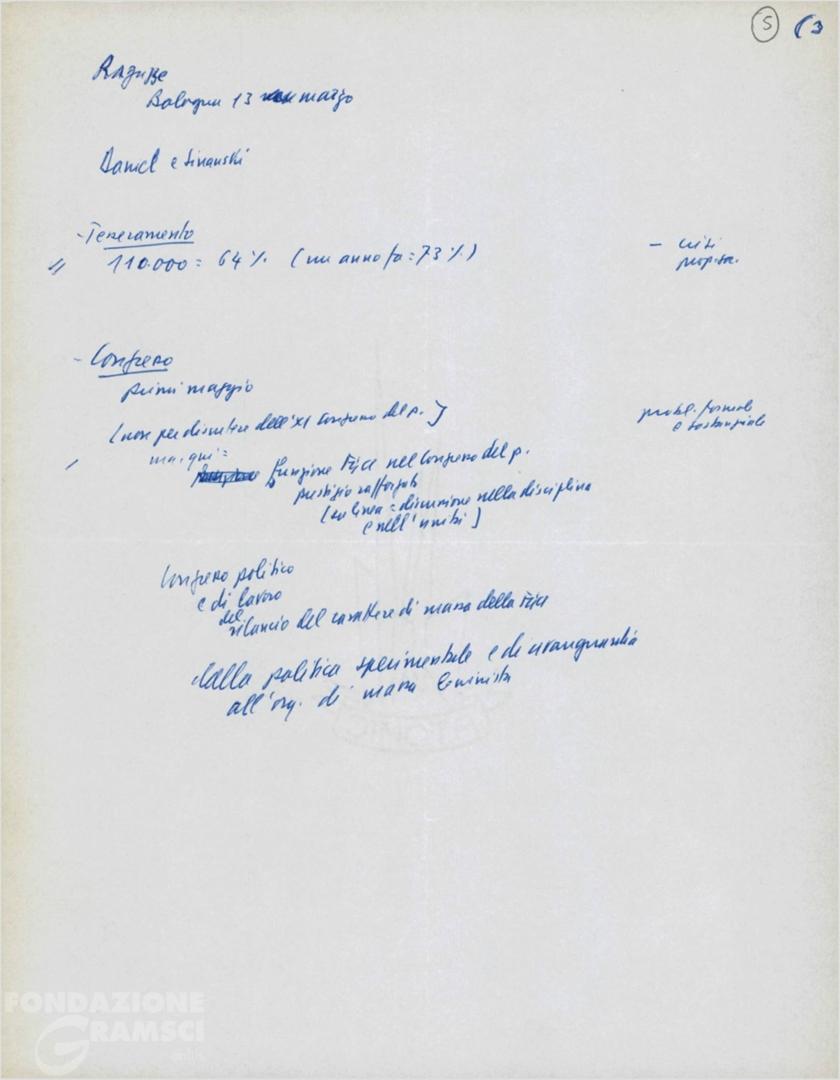 S (3
Ragazze
Bologna 13 marzo
Daniel e Sinanski
- Tesseramento
110.000 = 64% (un anno fa = 73%)
- crisi
- Congresso
primi maggio
(non per discutere dell'XI Congresso del p.)
ma qui =
funzione Fgci nel Congresso del p.
prestigio rafforzato
(su linea = discussione nella disciplina
e nell'unità)
probl. formale
e sostanziale
Congresso politico
e di lavoro
del
rilancio del carattere di massa della Fgci
dalla politica sperimentale e di avanguardia
all'org. di massa leninista
FONDAZIONE
GRAMSCI